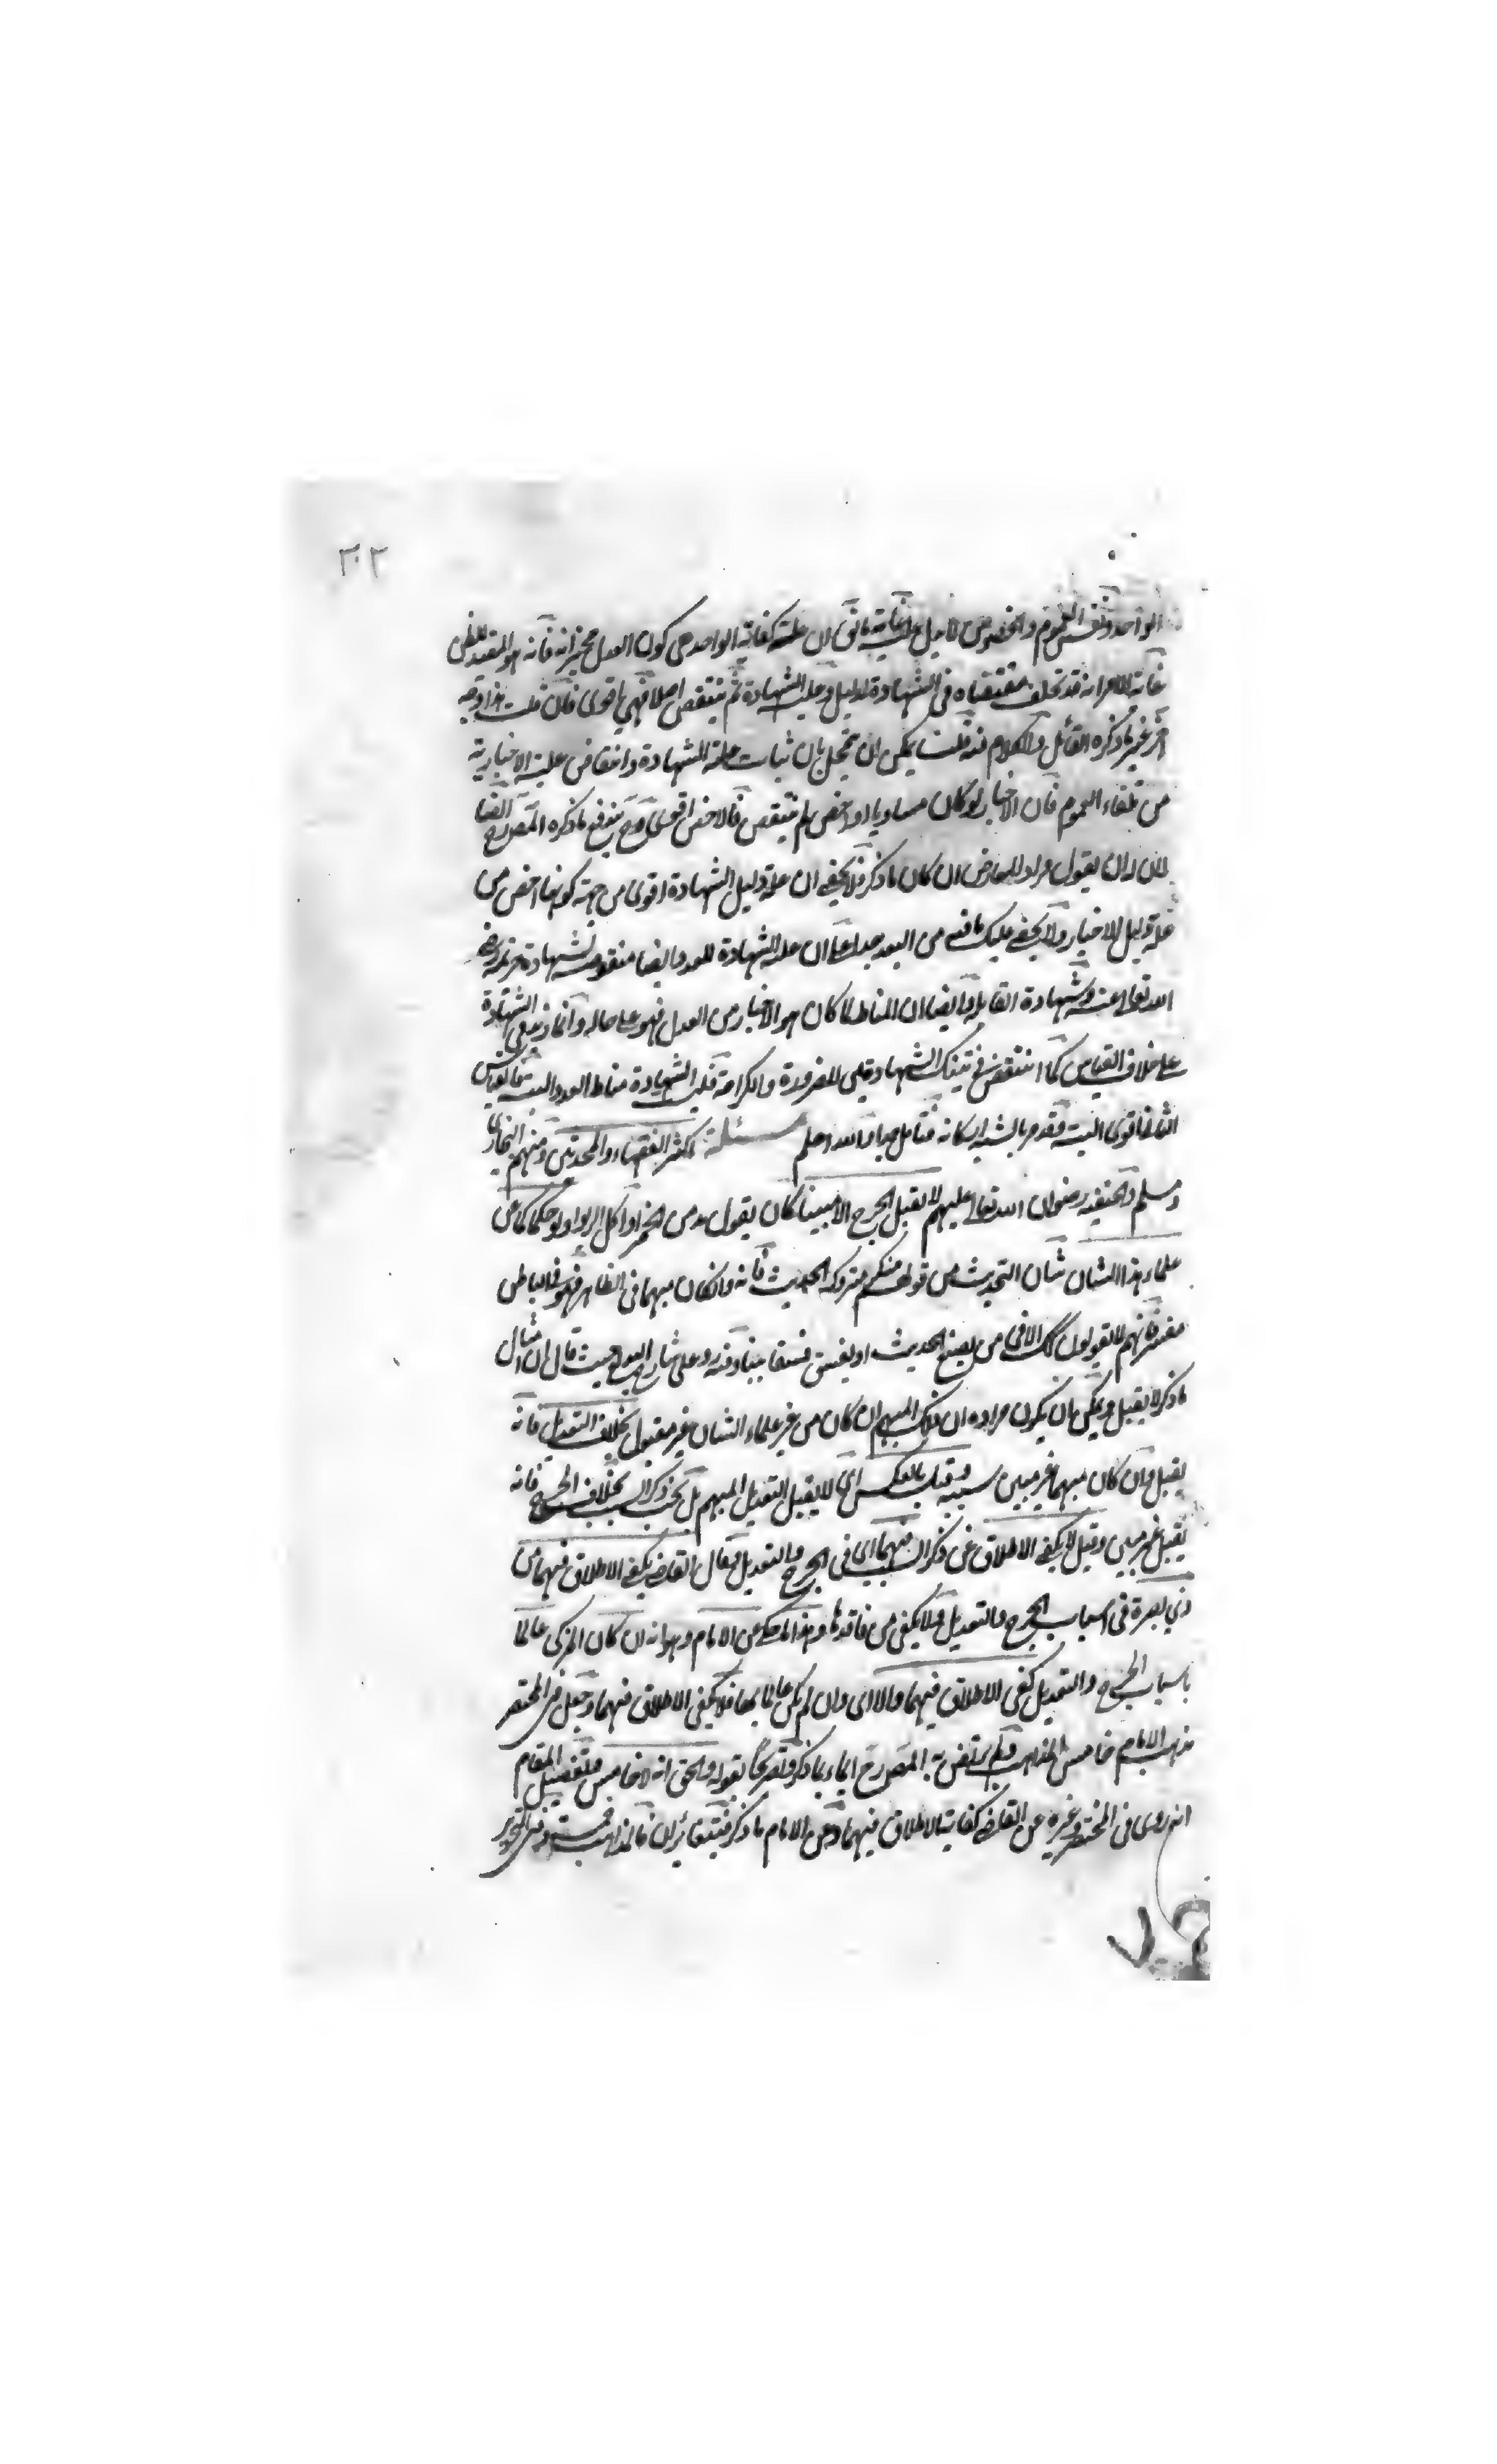 ٣٠٢
الواحد ونفس العموم والخصوص لا يدل على كفاية ان علته كفاية الواحد هى كون العدل مخبرا فانه هو المفيد للظن
غاية الامر انه قد تخلف مقتضاه فى الشهادة لدليل وعلة الشهادة لم ينتقض اصلا فهى اقوى فان قلت هذا وجه
آخر غير ما ذكره القائل والكلام فيه قلت يمكن ان ثبات علة الشهادة وانتقاض علية الاخبارية
من تلقاء العموم فان الاخبار لو كان مساويا او اخص لم ينتقض فالاخص اقوى وح يندفع ما ذكره المص رح ايضا
لان له ان يقول مراد المعارض ان كان ما ذكر فلا يخفى ان علة دليل الشهادة اقوى من جهة كونها اخص من
علة دليل الاخبار ولا يخفى عليك ما فيه من البعد جدا على ان علة الشهادة للعدد ايضا منقوضة بشهادة خزيمة رضى
الله تعالى عنه وشهادة القابلة وايضا ان المناط لما كان هو الاخبار من العدل فهو على حاله وانما زيد فى الشهادة
على خلاف القياس كما انتقض فى تينك الشهادتين للضرورة والكرامة فليس الشهادة مناط العدد البتة فالقياس
الثانى اقوى البتة فتقدم بالشبه لمكانه فتامل جدا والله اعلم مسئلة اكثر الفقهاء والمحدثين ومنهم البخارى
ومسلم والحنفية رضوان الله تعالى عليهم لا يقبل الجرح الا مبينا كان يقول مدمن الخمر او آكل الربوا ولو حكما كما عن
علماء هذا الشان شان التحديث من قولهم منكر متروك الحديث فانه وان كان مبهما فى الظاهر فهو فى الباطن
مفسر فانهم لا يقولون ذلك الا فى من يضع الحديث او يفسق فسقا بينا وفيه رد على شارح البديع حيث قال ان امثال
ما ذكر لا يقبل ويمكن بان يكون مراده ان ذلك المبهم ان كان من غير علماء الشان غير مقبول بخلاف التعديل فانه
يقبل وان كان مبهما غير مبين سببه وقيل بالعكس اى لا يقبل التعديل المبهم بل يجب ذكر السبب بخلاف الجرح فانه
يقبل غير مبين وقيل لا يكفى الاطلاق عن ذكر السبب فيهما اى فى الجرح والتعديل وقال القاضى يكفى الاطلاق فيهما من
ذى بصيرة فى اسباب الجرح والتعديل ولا يكفى من فاقدها وهذا المحكى عن الامام وهو انه ان كان المزكى عالما
باسباب الجرح والتعديل كفى الاطلاق فيهما والا اى وان لم يكن عالما بها فلا يكفى الاطلاق فيهما وجعل فى المختصر
مذهب الامام خامس المذاهب ولم يرتض به المص رح ايماء بما ذكر وتصريحا بقوله والحق انه لا خامس وتفصيل المقام
انه روى فى المختصر وغيره عن القاضى كفاية الاطلاق فيهما وعن الامام ما ذكر فيتغايران فالمذاهب خمسة وفى التحرير